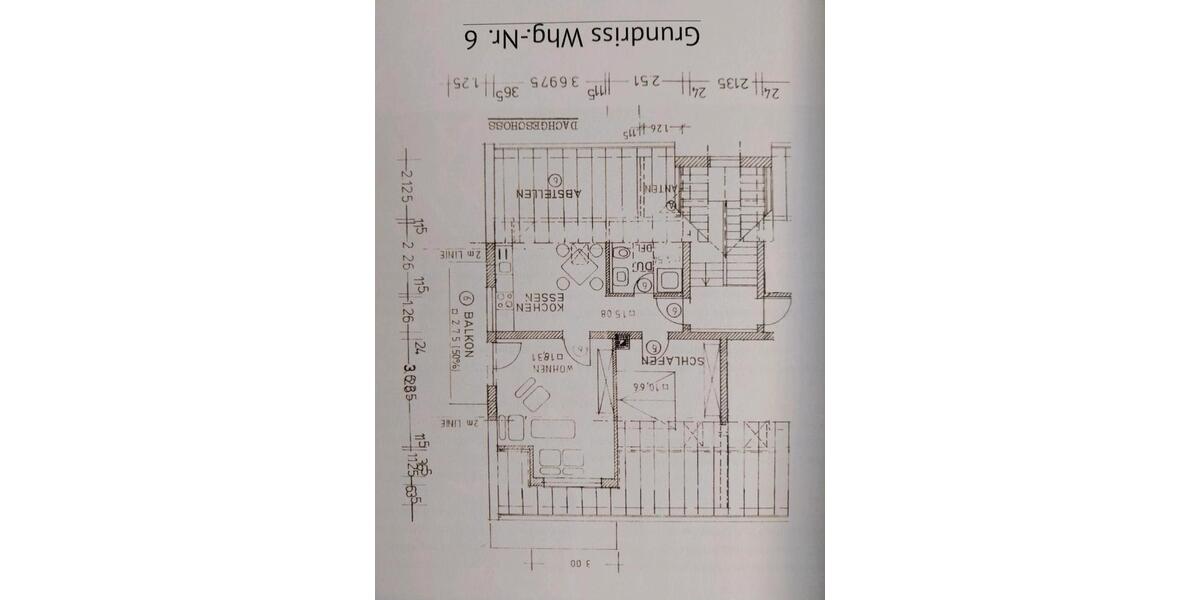 Grundriss Whg.-Nr. 6
1.25 365 3.6975 115 2.51 24 2.135 24
DACHGESCHOSS
115 1.26
ABSTELLEN
6
2m LINIE
KOCHEN
ESSEN
15.08
DU
6
6
6
BALKON
2.75 (50%)
WOHNEN
18,31
SCHLAFEN
10,66
2m LINIE
2.125
115
2.26
115
1.26
24
3.6285
115
365
1.125
635
3.00